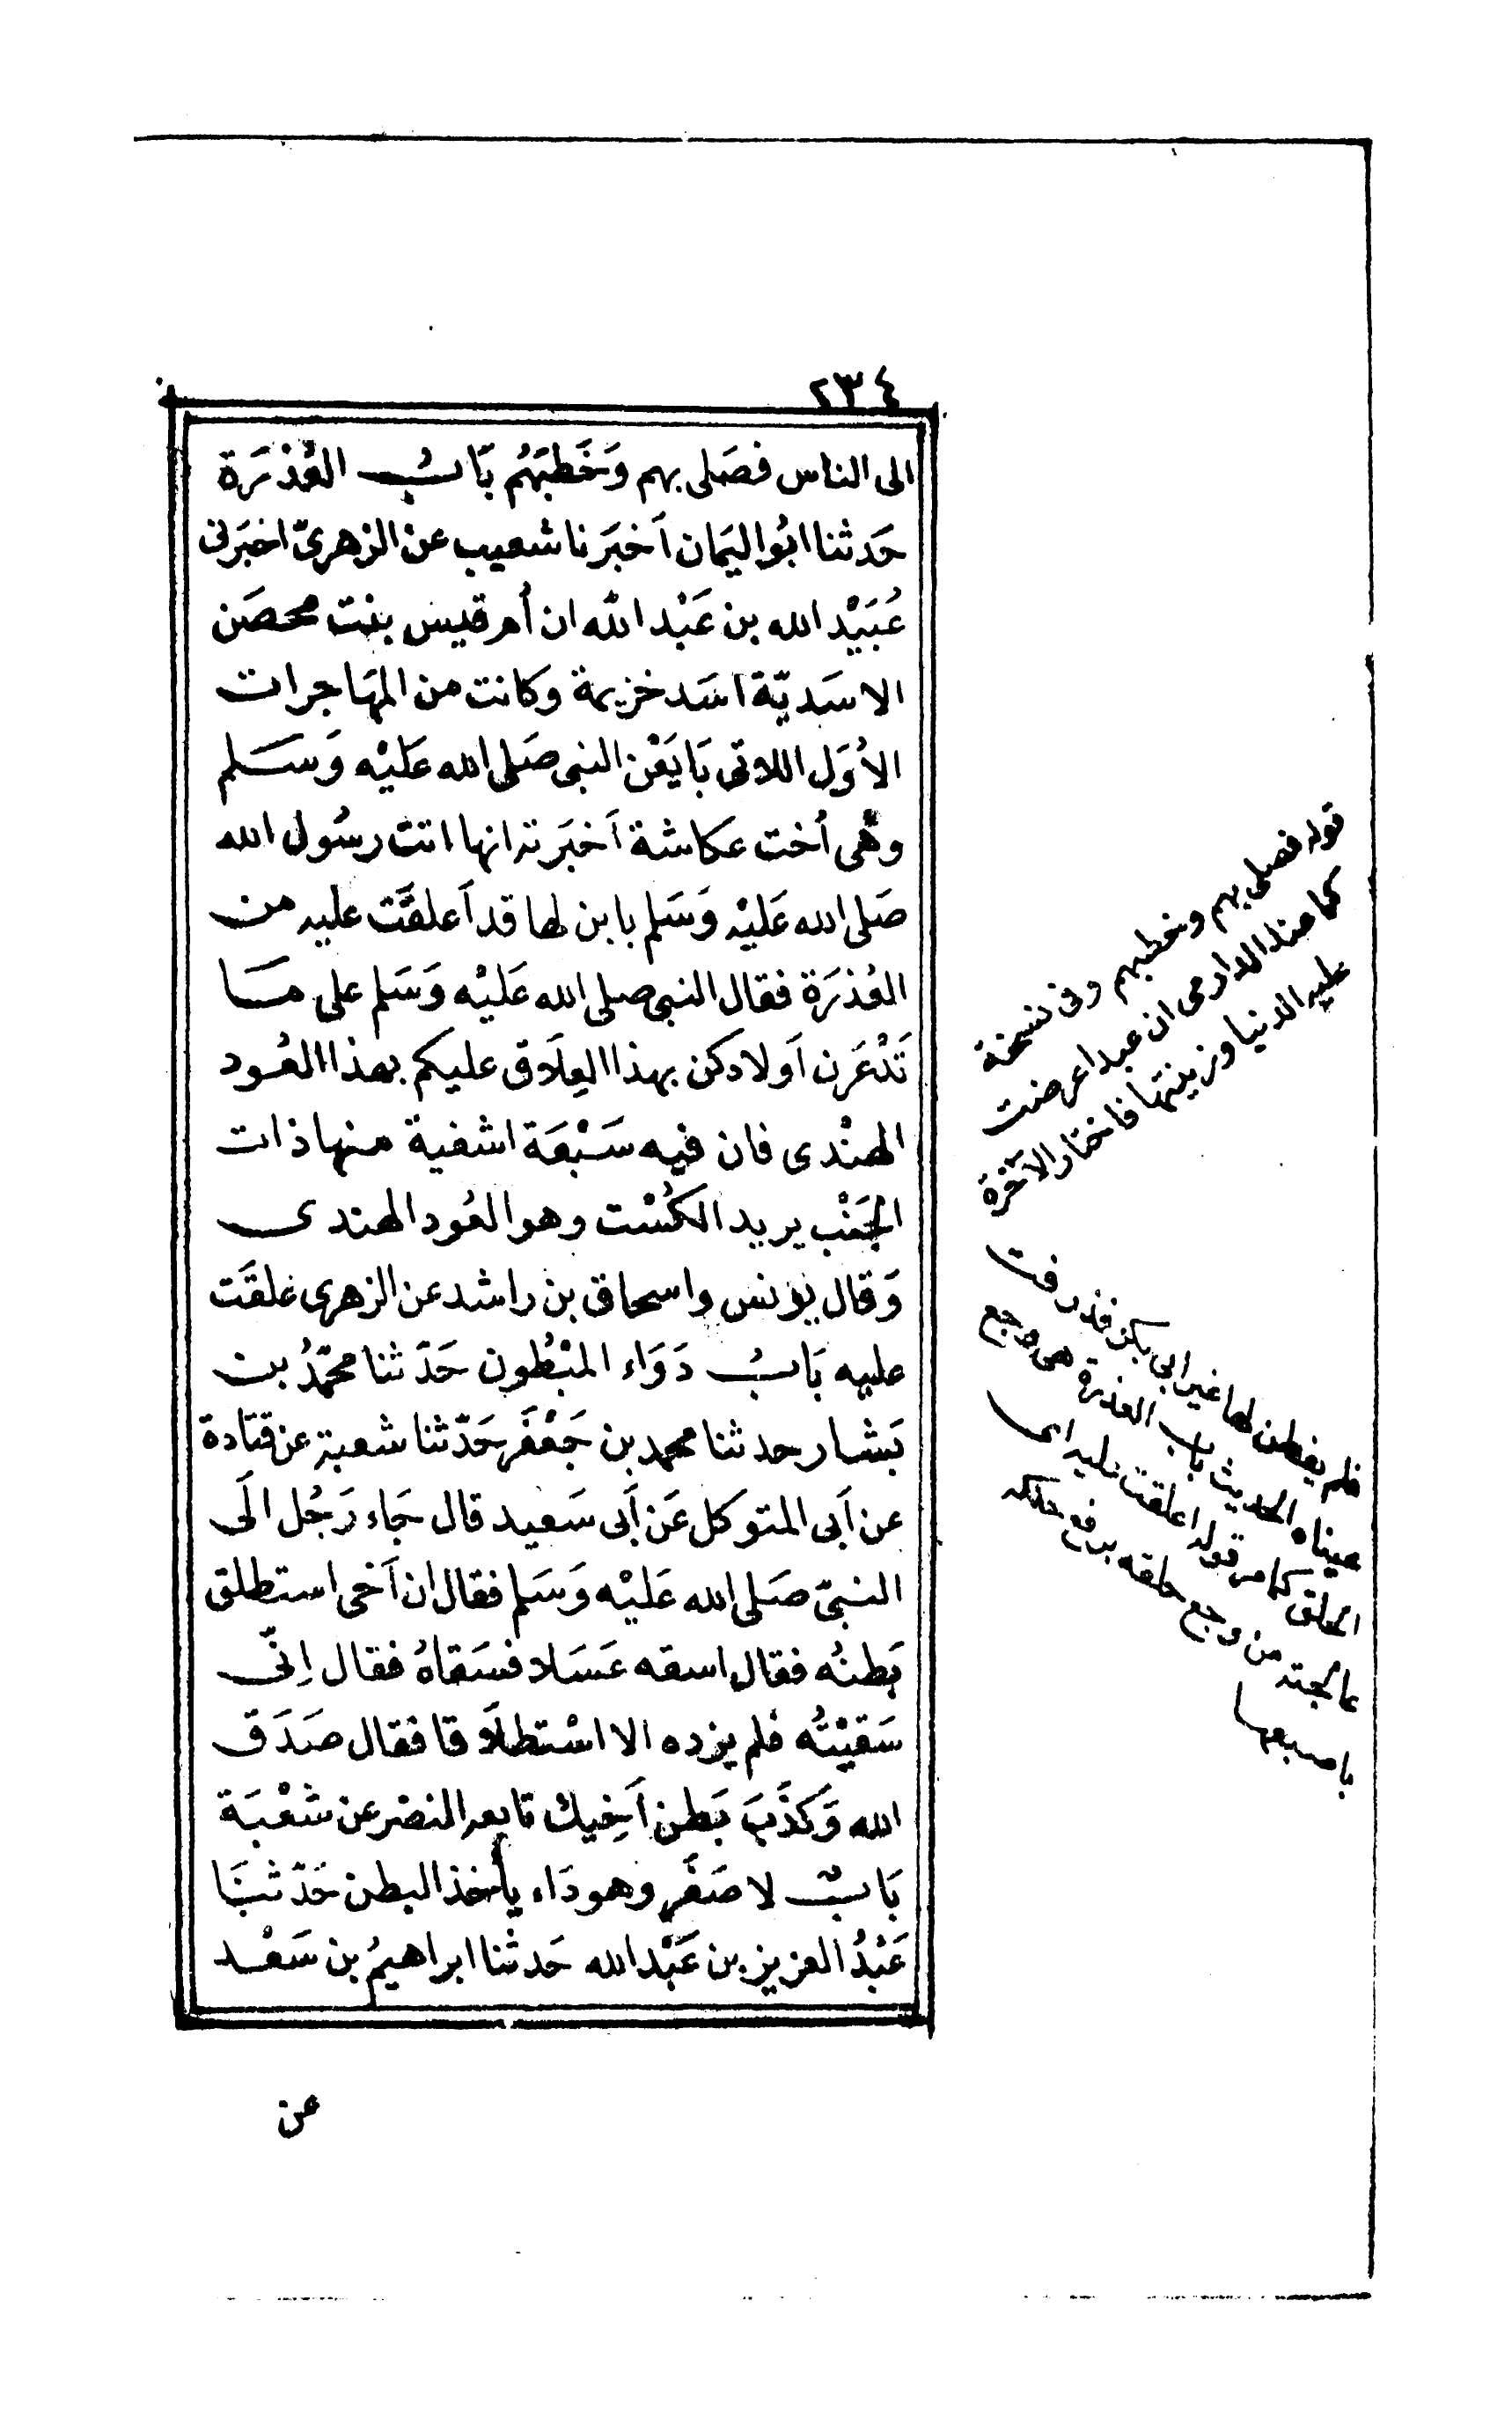 ٢٣٤
الى الناس فصَلى بهم وَخَطبَهُم بَابُ العُذرَة
حَدثنا ابُو اليَمان اَخبَرنا شعيب عن الزهرىّ اخبَرنى
عُبَيْد الله بن عَبْد الله ان أم قيس بنت محصَن
الاسَديّة اسَد خزيمة وكانت من المهَاجرات
الأوَل اللاتى بَايَعْن النبى صَلى الله عَليْه وَسَلم
وهْى أخت عكاشة اَخبَرته انها اتت رسُول الله
صَلى الله عَليْه وَسَلم بابن لها قد اَعلقَت عليه من
العُذرَة فقال النبى صلى الله عَليْه وَسَلم على مَا
تَدْغَرن اَولادكن بهذا العِلَاق عليكم بهذا العُود
الهنْدى فان فيه سَبْعَة اشفية منها ذات
الجَنْب يريد الكُسْت وهو العُود الهندى
وَقال يونس واسحاق بن راشد عن الزهرى علقَت
عليه بَابُ دَوَاء المبْطُون حَدّثنا محمّدُ بن
بَشار حدثنا محمد بن جَعْفَر حَدّثنا شعبة عن قتَادة
عن اَبى المتوكل عَن اَبى سَعيد قال جَاء رَجُل الَى
النبىّ صَلى الله عَليْه وَسَلم فقال ان اَخى استطلق
بَطنُه فقال اسقه عَسَلا فسَقاهُ فقال اِنّى
سَقيْتُه فلم يزده الا اسْتطلَاقا فقال صَدَق
الله وَكذَبَ بَطن اَخيك تابعه النضر عن شعْبَة
بَابٌ لا صَفَر وهو دَاء يأخذ البطن حَدّثنَا
عَبْدُ العزيز بن عَبْد الله حَدثنا ابراهيمُ بن سَعْد
عن
قوله فصلى بهم وخطبهم وفى نسخة
كما عند الدارمى ان عبدا عرضت
عليه الدنيا وزينتها فاختار الآخرة
فلم يفطن لها غير ابى بكر فذرفت
عيناه الحديث باب العذرة هى وجع
الحلق كما مر قوله اعلقت عليه اى
عالجته من وجع حلقه برفع حنكه
باصبعها